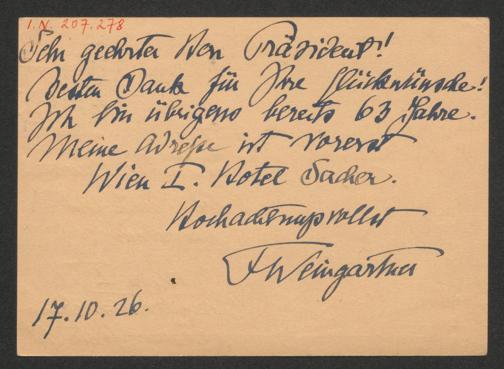 I.N. 207.278
Sehr geehrter Herr Präsident!
Besten Dank für Ihre Glückwünsche!
Ich bin übrigens bereits 63 Jahre.
Meine Adresse ist vorerst
Wien I. Hotel Sacher.
Hochachtungsvollst
F Weingartner
17.10.26.